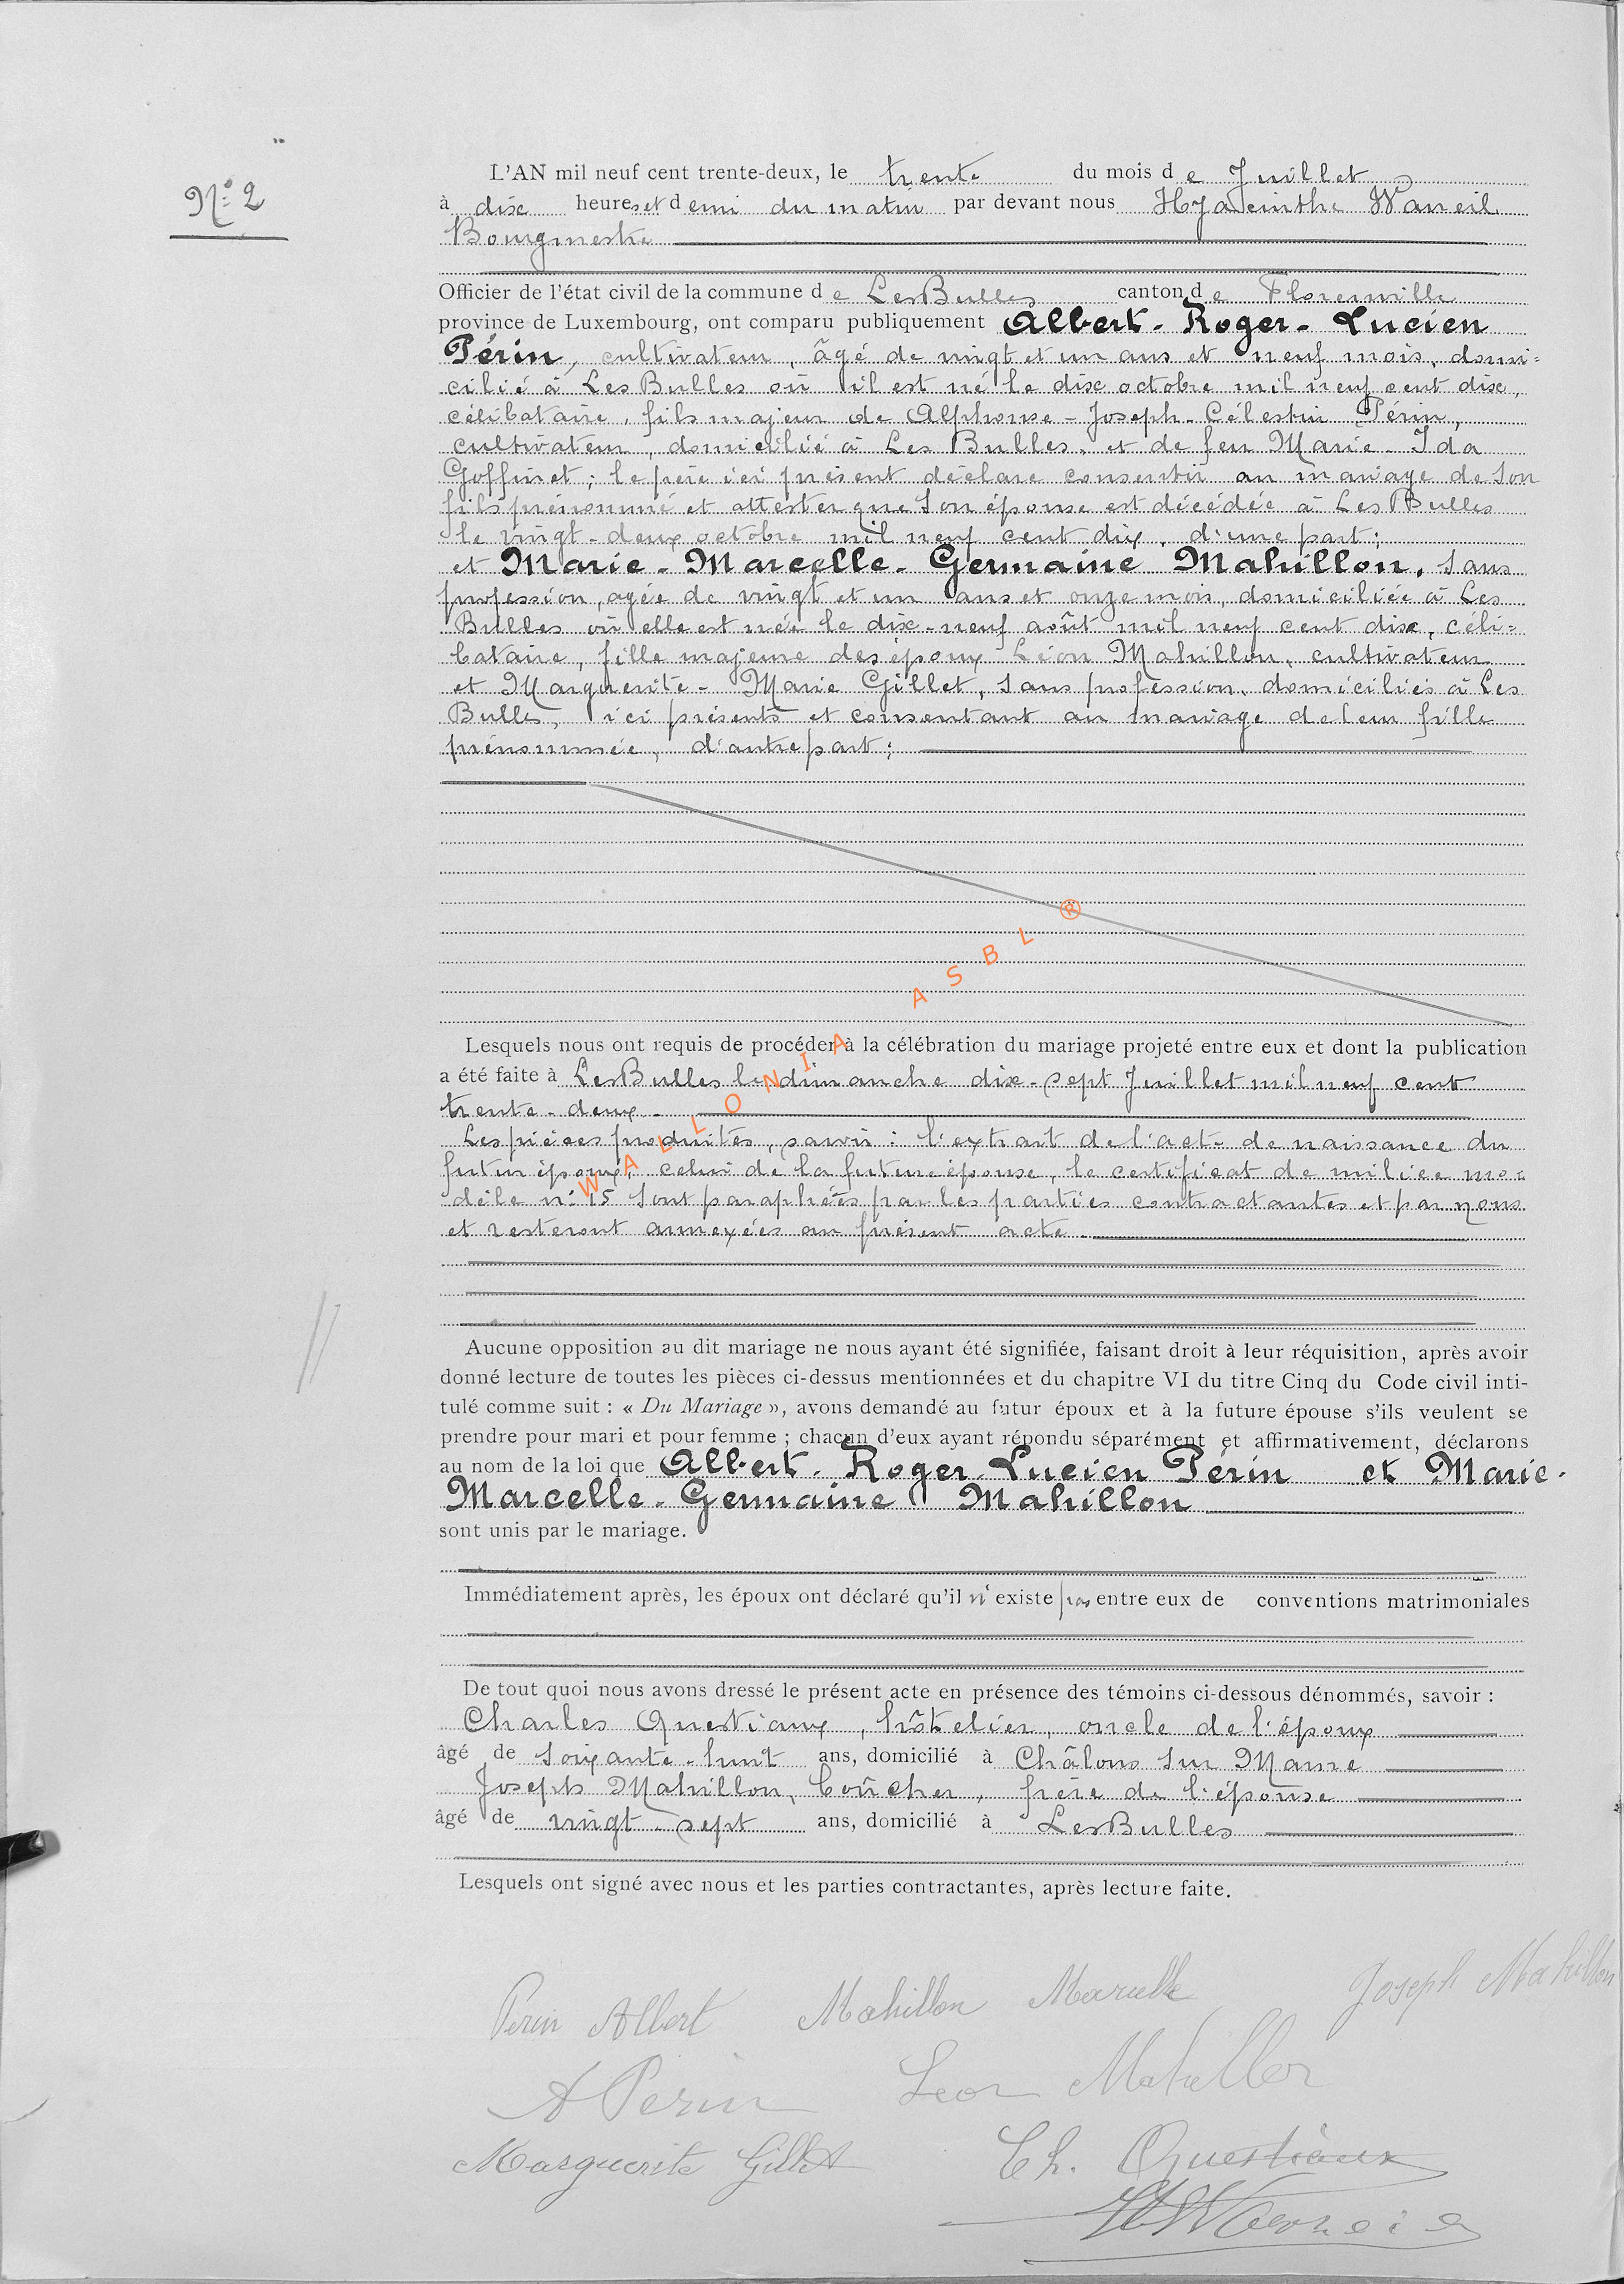 N° 2
L'AN mil neuf cent trente-deux, le trente du mois de Juillet
à dix heures et demi du matin par devant nous Hyacinthe Waneil
Bourgmestre
Officier de l'état civil de la commune de Les Bulles canton de Florenville
province de Luxembourg, ont comparu publiquement Albert-Roger-Lucien
Périn, cultivateur, âgé de vingt et un ans et neuf mois, domi=
cilié à Les Bulles où il est né le dix octobre mil neuf cent dix,
célibataire, fils majeur de Alphonse-Joseph-Célestin Périn,
cultivateur, domicilié à Les Bulles, et de feu Marie-Ida
Goffinet; le père ici présent déclare consentir au mariage de son
fils prénommé et attester que son épouse est décédée à Les Bulles
le vingt-deux octobre mil neuf cent dix, d'une part;
et Marie-Marcelle-Germaine Mahillon, sans
profession, agée de vingt et un ans et onze mois, domiciliée à Les
Bulles où elle est née le dix-neuf août mil neuf cent dix, céli=
bataire, fille majeure des époux Léon Mahillon, cultivateur
et Marguerite-Marie Gillet, sans profession, domiciliés à Les
Bulles, ici présents et consentant au mariage de leur fille
prénommée, d'autre part;
Lesquels nous ont requis de procéder à la célébration du mariage projeté entre eux et dont la publication
a été faite à Les Bulles le dimanche dix-sept Juillet mil neuf cent
trente-deux.
Les pièces produites, savoir : l'extrait de l'acte de naissance du
futur époux, celui de la future épouse, le certificat de milice mo=
dèle n° 15 sont paraphées par les parties contractantes et par nous
et resteront annexées au présent acte.
WALLONIA ASBL ®
Aucune opposition au dit mariage ne nous ayant été signifiée, faisant droit à leur réquisition, après avoir
donné lecture de toutes les pièces ci-dessus mentionnées et du chapitre VI du titre Cinq du Code civil inti-
tulé comme suit : « Du Mariage », avons demandé au futur époux et à la future épouse s'ils veulent se
prendre pour mari et pour femme ; chacun d'eux ayant répondu séparément et affirmativement, déclarons
au nom de la loi que Albert-Roger-Lucien Périn et Marie-
Marcelle-Germaine Mahillon
sont unis par le mariage.
Immédiatement après, les époux ont déclaré qu'il n'existe pas entre eux de conventions matrimoniales
De tout quoi nous avons dressé le présent acte en présence des témoins ci-dessous dénommés, savoir :
Charles Questiaux, hôtelier, oncle de l'époux
âgé de soixante-huit ans, domicilié à Châlons sur Marne
Joseph Mahillon, boûcher, frère de l'épouse
âgé de vingt-sept ans, domicilié à Les Bulles
Lesquels ont signé avec nous et les parties contractantes, après lecture faite.
Perin Albert Mahillon Marcelle Joseph Mahillon
A Perin Leon Mahillon
Marguerite Gillet Ch. Questiaux